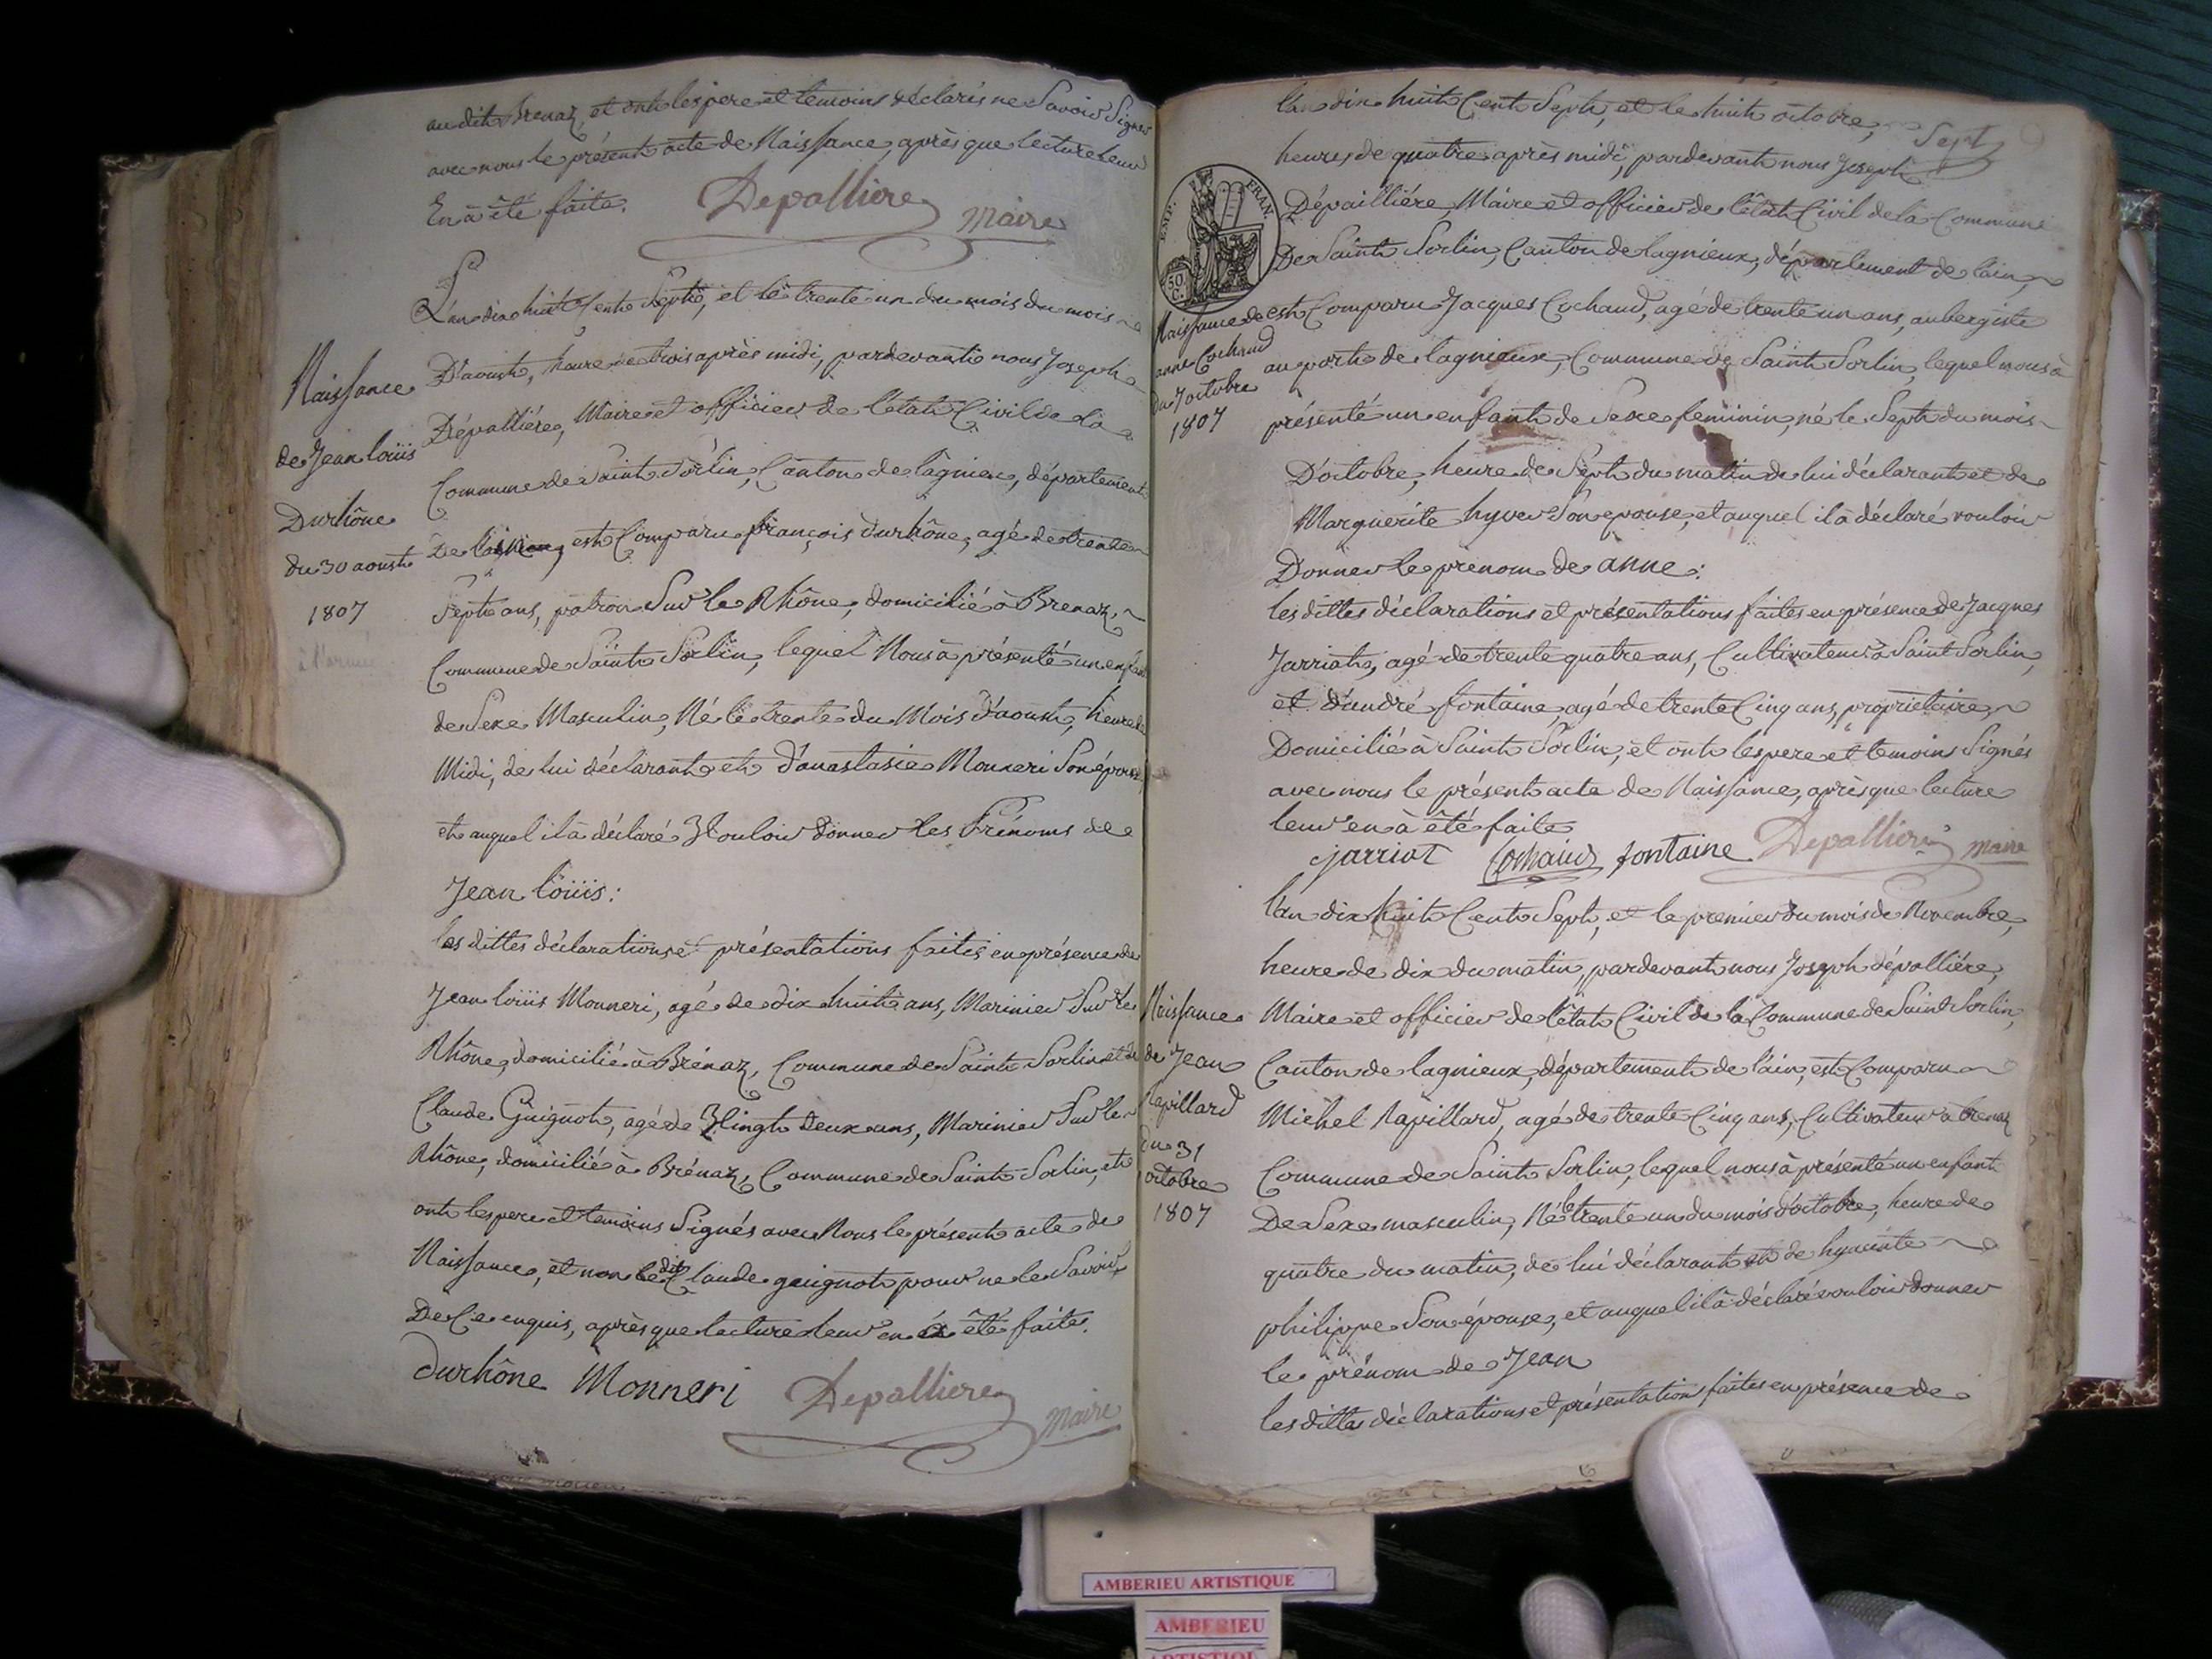 audit Brenaz, et ont les pere et temoins déclarés ne Savoir Signer
avec nous le présent acte de Naissance, après que lecture leur
En à été faite.
Depalliere Maire
L'an dix huit Cent Sept, et le trente un du mois du mois
D'aoust, heure de trois après midi, pardevant nous Joseph
Dépalliére, Maire et officier de l'état Civil de la
Commune de Saint Sorlin, Canton de lagnieu, département
De l'ain, est Comparu françois durhône, agé de trente
Sept ans, patron Sur le Rhône, domicilié à Brenaz,
Commune de Saint Sorlin, lequel Nous à présenté un enfant
de Sexe Masculin, Né le trente du Mois d'aoust, heure de
Midi, de lui déclarant et d'anastasie Monneri Son épouse,
et auquel il à déclaré Vouloir donner les Prénoms de
Jean loüis:
les dittes déclarations et présentations faites en présence de
Jean loüis Monneri, agé de dix huit ans, Marinier Sur le
Rhône, domicilié à Brénaz, Commune de Saint Sorlin et de
Claude Guignot, agé de Vingt Deux ans, Marinier Sur le
Rhône, domicilié à Brénaz, Commune de Saint Sorlin, et
ont les pere et temoins Signés avec Nous le présent acte de
Naissance, et non le dit Claude guignot pour ne le Savoir
De Ce enquis, après que lecture leur en à été faite.
durhône Monneri Depalliere Maire
Naissance
de Jean loüis
Durhône
du 30 aoust
1807
Sept
l'an dix huit Cent Sept, et le huit octobre,
heures de quatre après midi, pardevant nous Joseph
Dépailliére, Maire et officier de l'état Civil de la Commune
De Saint Sorlin, Canton de lagnieux, département de l'ain,
est Comparu Jacques Cochaud, agé de trente un ans, aubergiste
au port de lagnieux, Commune de Saint Sorlin, lequel nous à
présenté un enfant de Sexe feminin, né le Sept du mois
D'octobre, heure de Sept du matin de lui déclarant et de
Marguerite hyver Son epouse, et auquel il à déclaré vouloir
Donner le prénom de anne:
les dittes déclarations et présentations faites en présence de Jacques
Jarriat, agé de trente quatre ans, Cultivateur à Saint Sorlin,
et d'andré fontaine, agé de trente Cinq ans, propriétaire,
Domicilié à Saint Sorlin, et ont les pere et temoins Signés
avec nous le présent acte de Naissance, après que lecture
leur en à été faite
jarriat Cochaud fontaine Depalliere maire
l'an dix huit Cent Sept, et le premier du mois de Novembre,
heure de dix du matin, pardevant nous Joseph dépalliére,
Maire et officier de l'état Civil de la Commune de Saint Sorlin,
Canton de lagnieux, département de l'ain, est Comparu
Michel Rapillard, agé de trente Cinq ans, Cultivateur à brenaz
Commune de Saint Sorlin, lequel nous à présenté un enfant
De Sexe masculin, Né le trente un du mois d'octobre, heure de
quatre du matin, de lui déclarant et de hyacinte
philippe Son épouse, et auquel il à déclaré vouloir donner
le prénom de Jean
les dittes déclarations et présentations faites en présence de
EMP. FRAN.
50 C.
Naissance de
anne Cochaud
du 7 octobre
1807
Naissance
de Jean
Rapillard
du 31
octobre
1807
AMBERIEU ARTISTIQUE
AMBERIEU
ARTISTIQUE